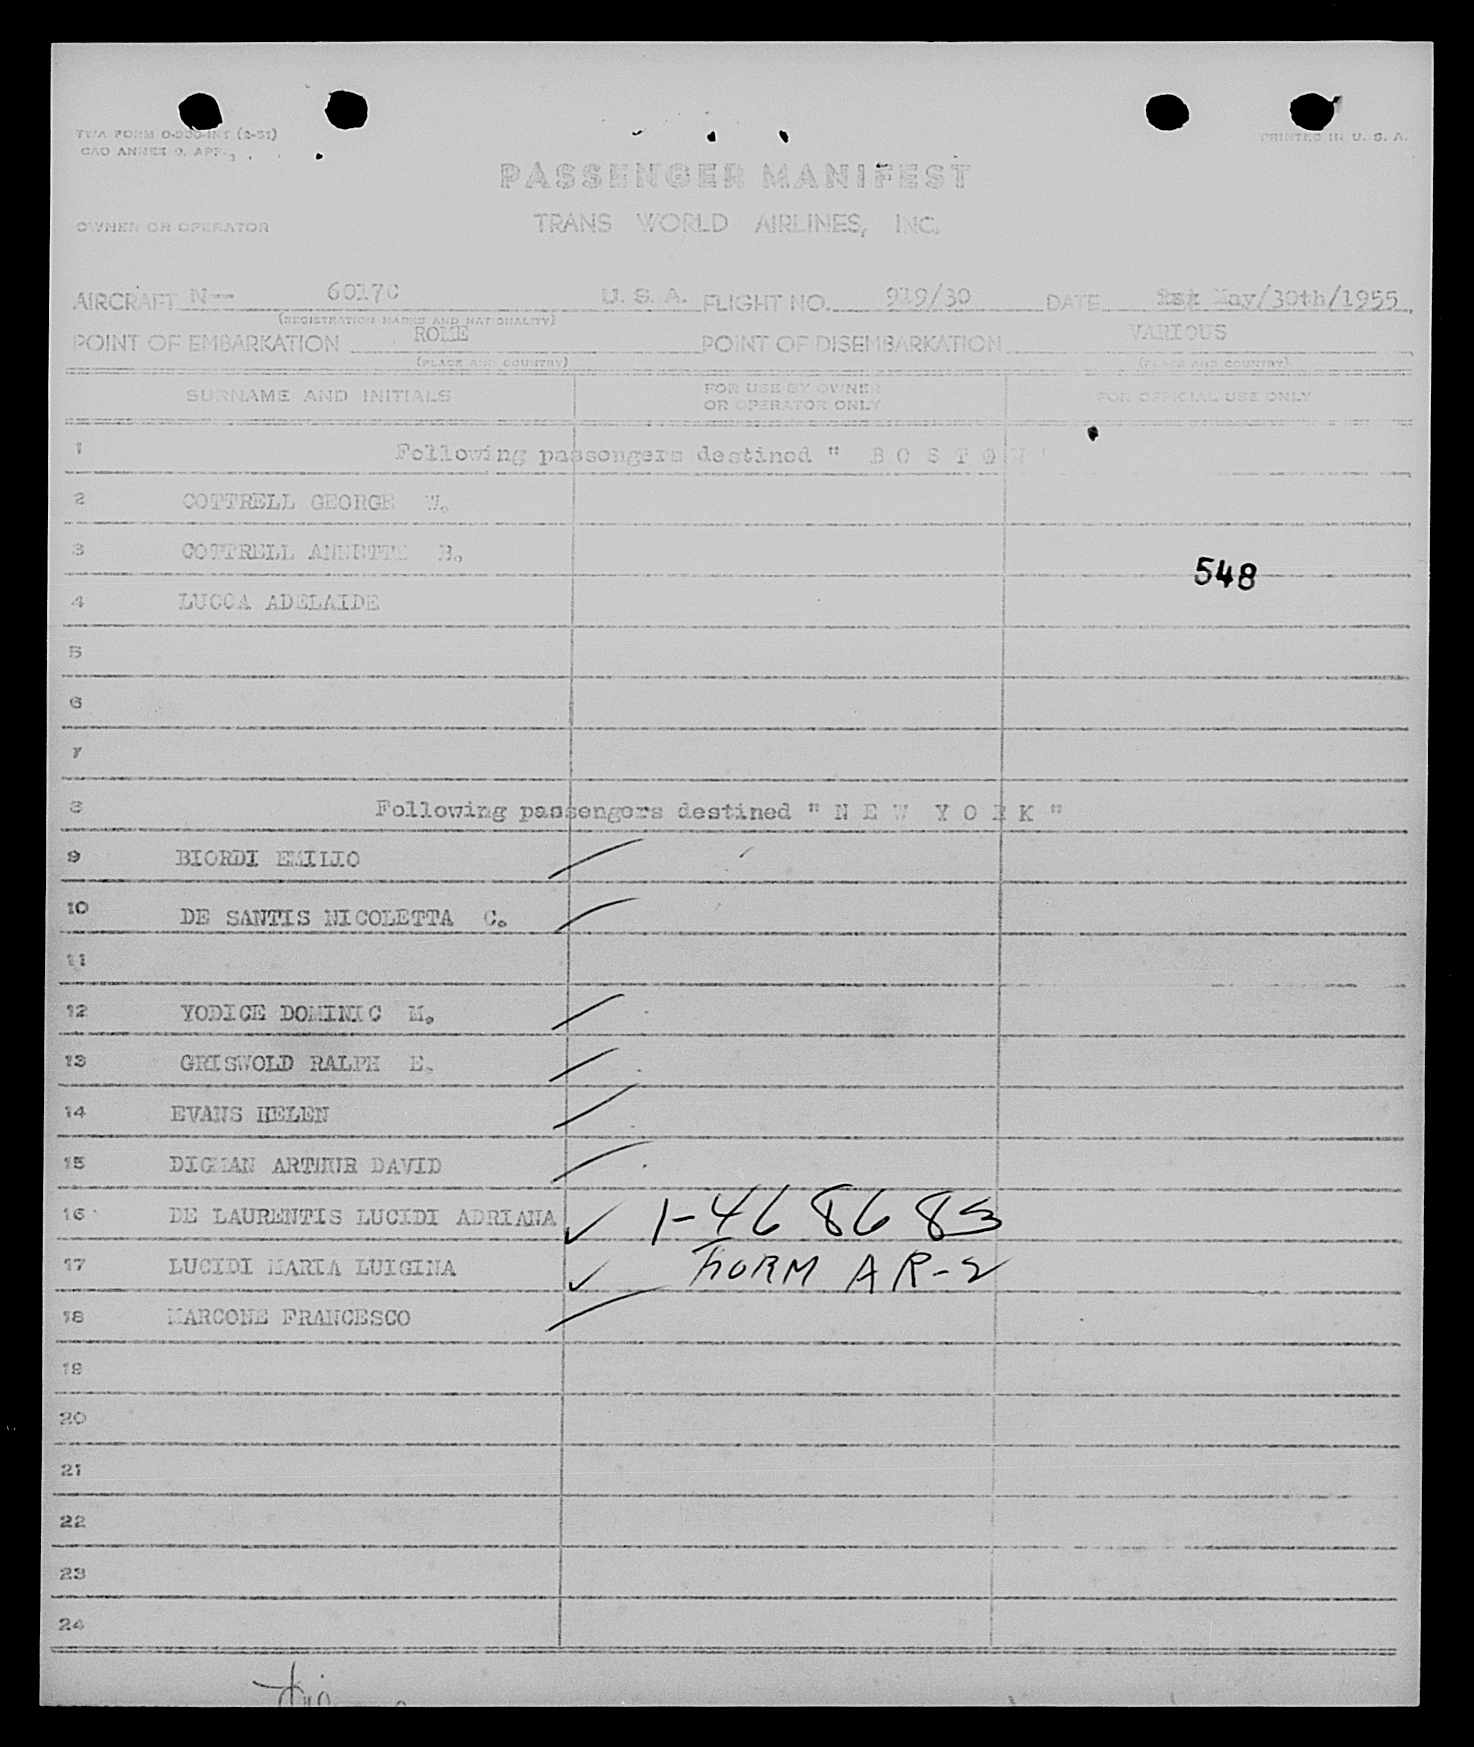 TWA FORM O-200-INT (2-51)
PRINTED IN U. S. A.
CAO ANNEX 9, APP.
PASSENGER MANIFEST
OWNER OR OPERATOR
TRANS WORLD AIRLINES, INC.
AIRCRAFT N-- 6017C U. S. A. FLIGHT NO. 919/30 DATE May/30th/1955
(REGISTRATION MARKS AND NATIONALITY)
POINT OF EMBARKATION ROME POINT OF DISEMBARKATION VARIOUS
(PLACE AND COUNTRY) (PLACE AND COUNTRY)
SURNAME AND INITIALS FOR USE BY OWNER OR OPERATOR ONLY FOR OFFICIAL USE ONLY
1 Following passengers destined " B O S T O N "
2 COTTRELL GEORGE W.
3 COTTRELL ANNETTE B.
548
4 LUCCA ADELAIDE
5
6
7
8 Following passengers destined " N E W Y O R K "
9 BIORDI EMILIO
10 DE SANTIS NICOLETTA C.
11
12 YODICE DOMINIC M.
13 GRISWOLD RALPH E.
14 EVANS HELEN
15 DIGMAN ARTHUR DAVID
16 DE LAURENTIS LUCIDI ADRIANA ✓ 1-4686883
17 LUCIDI MARIA LUIGINA ✓ FORM AR-2
18 MARCONE FRANCESCO
19
20
21
22
23
24